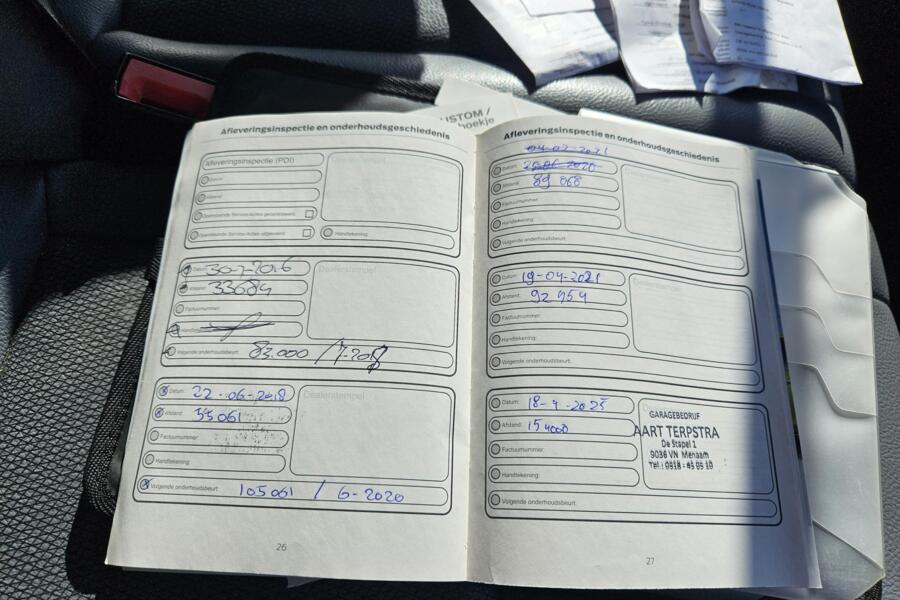 USTOM /
boekje
Afleveringsinspectie en onderhoudsgeschiedenis
Afleveringsinspectie (PDI)
Datum:
Afstand:
Openstaande Service-Acties gecontroleerd:
Openstaande Service-Acties uitgevoerd:
Handtekening:
Datum: 30-7-2016
Afstand: 33684
Factuurnummer:
Handtekening:
Volgende onderhoudsbeurt:
Dealerstempel
Datum: 22-06-2018
Afstand: 55061
Factuurnummer:
Handtekening:
Volgende onderhoudsbeurt: 105061 / 6-2020
Dealerstempel
26
Afleveringsinspectie en onderhoudsgeschiedenis
04-02-2021
Datum:
Afstand: 89 068
Factuurnummer:
Handtekening:
Volgende onderhoudsbeurt:
Datum: 19-04-2021
Afstand:
Factuurnummer:
Handtekening:
Volgende onderhoudsbeurt:
Datum: 18-4-2025
Afstand: 154000
Factuurnummer:
Handtekening:
Volgende onderhoudsbeurt:
GARAGEBEDRIJF
AART TERPSTRA
De Stapel 1
9036 VN Menaam
27